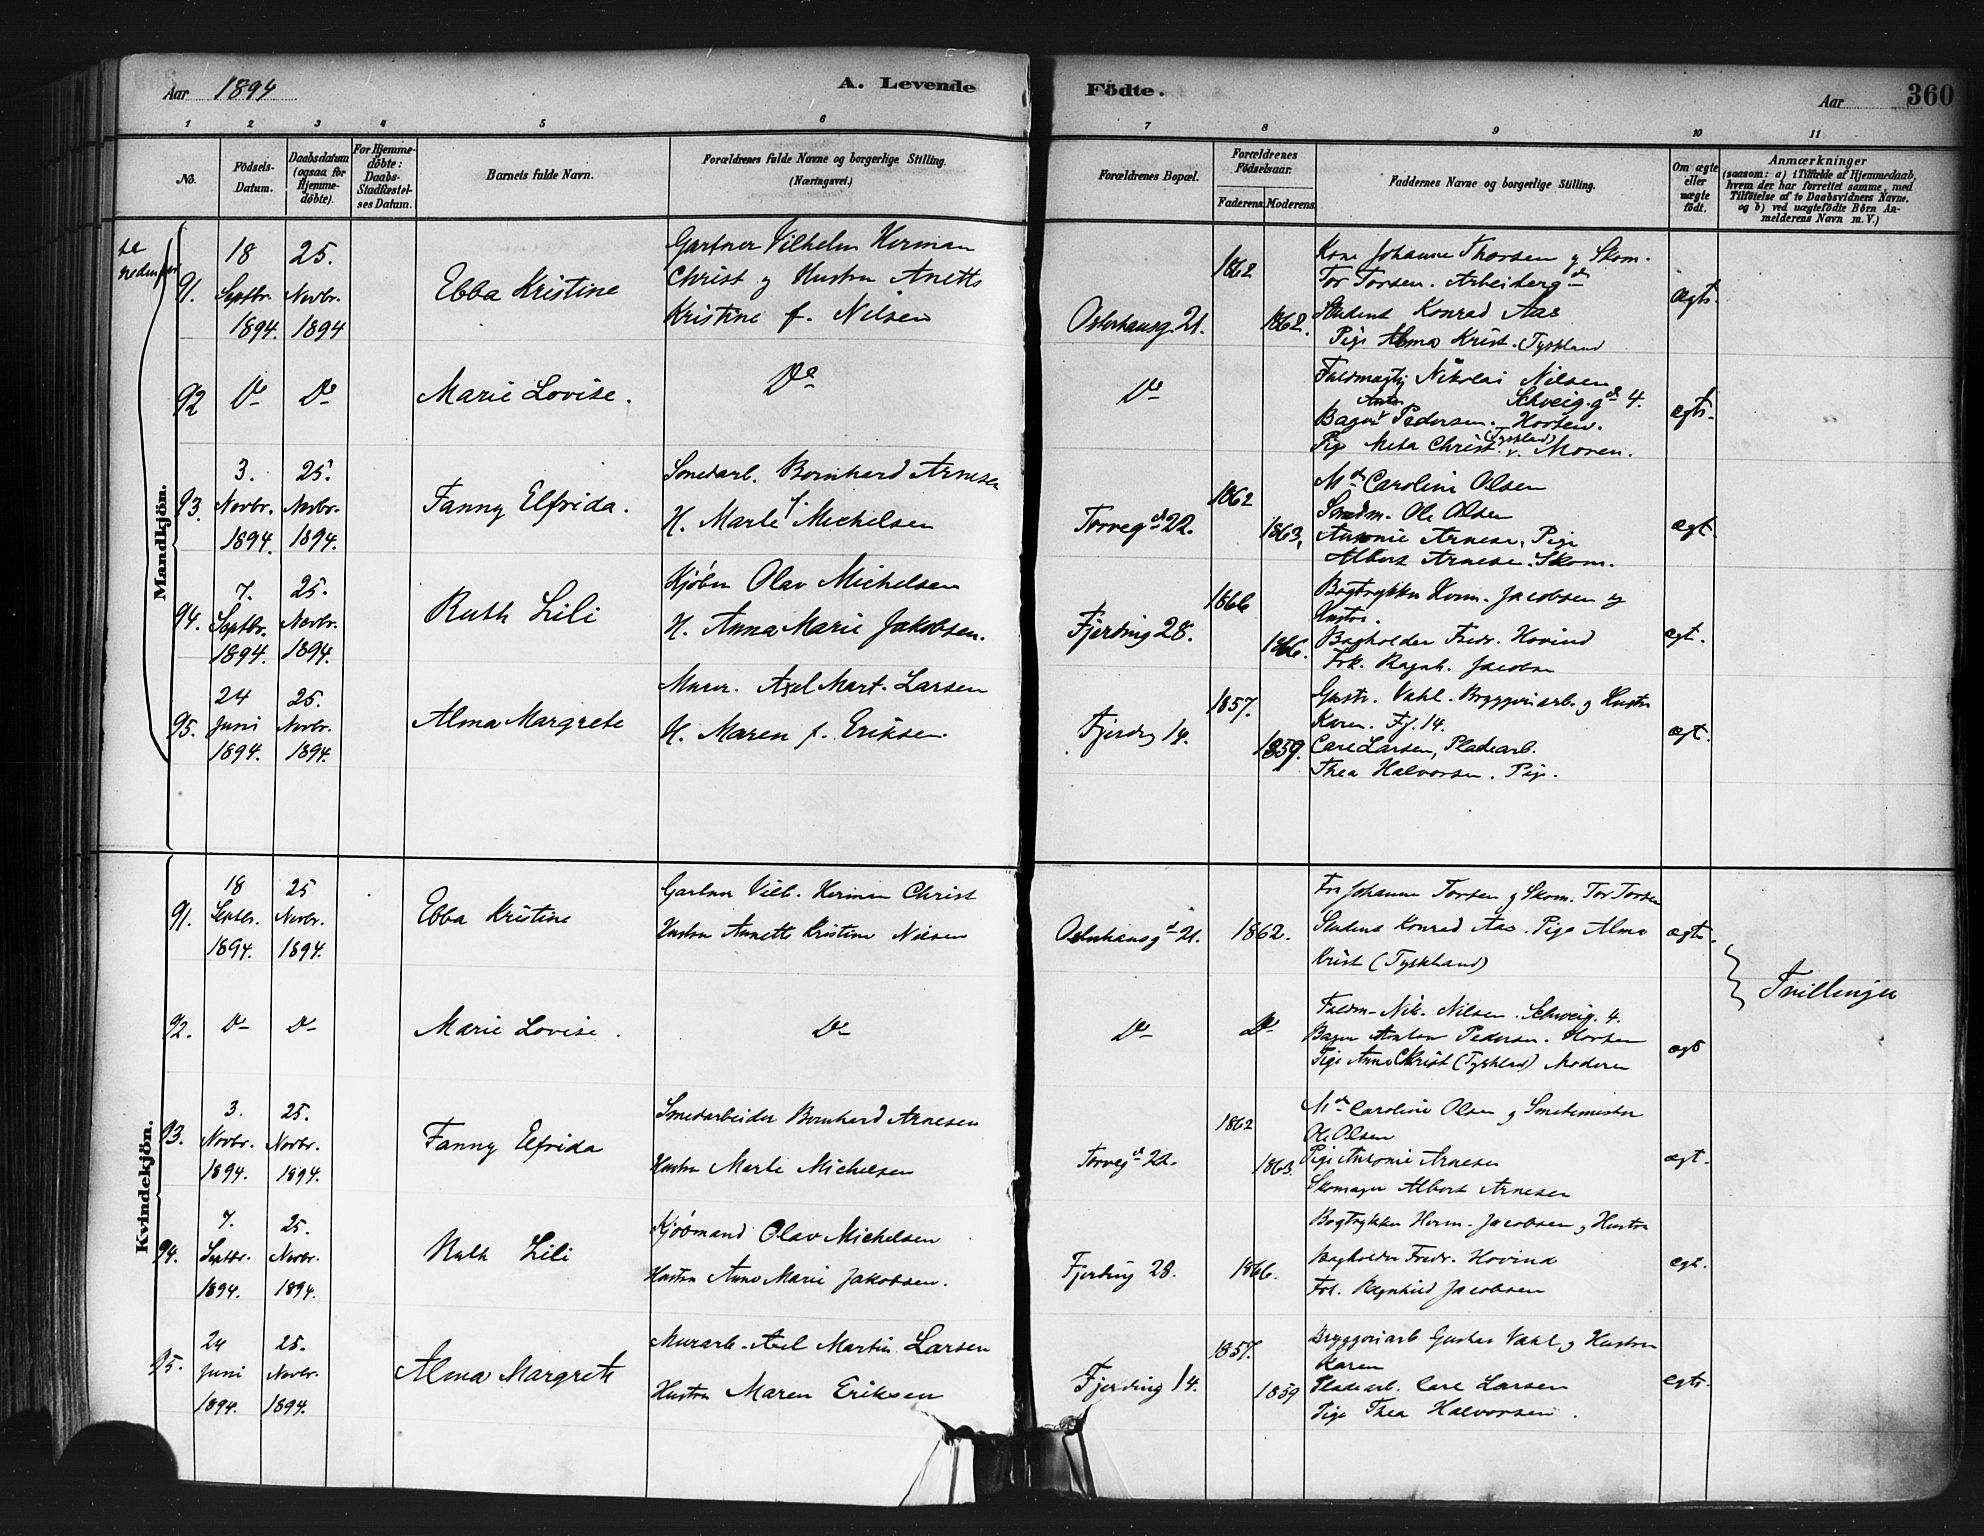 Aar 1894
A. Levende Födte.
Aar
360
1 2 3 4 5 6 7 8 9 10 11
No.
Födsels-Datum.
Daabsdatum (ogsaa for Hjemme-döbte).
For Hjemme-döbte: Daabs-Stadfæstel-ses Datum.
Barnets fulde Navn.
Forældrenes fulde Navne og borgerlige Stilling.
(Næringsvei.)
Forældrenes Bopæl.
Forældrenes Födselsaar.
Faderens. Moderens.
Faddernes Navne og borgerlige Stilling.
Om ægte eller uægte födt.
Anmærkninger
(saasom: a) i Tilfælde af Hjemmedaab, hvem der har forrettet samme, med Tilföielse af to Daabsvidners Navne, og b) ved uægtefödte Börn An-melderens Navn m. V.)
Mandkjön.
se nedenfor
91. 18 Septbr. 1894. 25. Novbr. 1894
Ebba Kristine
Gartner Vilhelm Herman
Christ og Hustru Anette
Kristine f. Nilsen
Osterhausg. 21.
1862 1862.
Kone Johanne Thorsen og Skom.
Tor Torsen. Arbeiderg d
Student Konrad Aas
Pige Alma Krist. (Tyskland
Ægte.
92 Do Do
Marie Lovise.
Do
Do
Fuldmægtig Nikolai Nilsen
Schweig. gd 4.
Bager Anton Pedersen. Horten.
Pige Meta Christ. (Tyskland) Moren.
ægte.
93. 3. Novbr. 1894. 25. Novbr. 1894.
Fanny Elfrida.
Smedarb. Bernhard Arnesen
H. Marte f. Michelsen
Torvegd 22.
1862 1863.
Md Caroline Olsen
Smedm. Ole Olsen
Antonie Arnesen, Pige
Albert Arnesen. Skom.
ægt.
94. 7. Septbr. 1894. 25. Novbr. 1894.
Ruth Lili
Kjöbm Olav Michelsen
H. Anna Marie Jakobsen.
Fjerding 28.
1866 1866.
Bogtrykker Herm. Jacobsen og
Hustru.
Bogholder Fredr. Hovind
Frk. Ragnh. Jacobsen
ægt.
95. 24 Juni 1894. 25. Novbr. 1894.
Alma Margrete
Murer. Axel Mart. Larsen
H. Maren f. Eriksen.
Fjerding 14.
1857. 1859.
Gustv. Vahl. Bryggeriarb. og Hustru
Karen. Fj. 14.
Carl Larsen, Pladearb.
Thea Halvorsen. Pige.
ægt.
Kvindekjön.
91. 18 Septbr. 1894. 25 Novbr. 1894.
Ebba Kristine
Gartner Vilh. Herman Christ
Hustru Annette Kristine Nilsen
Osterhausgd 21.
1862.
Fru Johanne Torsen og Skom. Tor Torsen
Student Konrad Aas. Pige Alma
Krist (Tyskland)
ægte.
Tvillinger
92. Do Do
Marie Lovise.
Do
Do
Do
Fuldm. Nik. Nilsen. Schweig. 4.
Bager Anton Pedersen. Horten
Pige Anna Christ (Tyskland) Moderen
ægt
93. 3. Novbr. 1894. 25. Novbr. 1894.
Fanny Elfrida
Smedarbeider Bernhard Arnesen
Hustru Marte Michelsen
Torvegd 22.
1862 1863.
Md Caroline Olsen og Smedemester
Ole Olsen
Pige Antonie Arnesen
Skomager Albert Arnesen
ægt.
94. 7. Septbr. 1894. 25. Novbr. 1894.
Ruth Lili
Kjöbmand Olav Michelsen
Hustru Anna Marie Jakobsen.
Fjerding 28.
1866.
Bogtrykker Herm. Jacobsen og Hustru
Bogholder Fredr. Hovind
Frk. Ragnhild Jacobsen
ægt.
95. 24 Juni 1894. 25. Novbr. 1894.
Alma Margrete
Murarb. Axel Martin Larsen
Hustru Maren Eriksen
Fjerding 14.
1857. 1859
Bryggeriarb Gustav Vahl og Hustru
Karen
Pladearb. Carl Larsen
Pige Thea Halvorsen.
ægte.